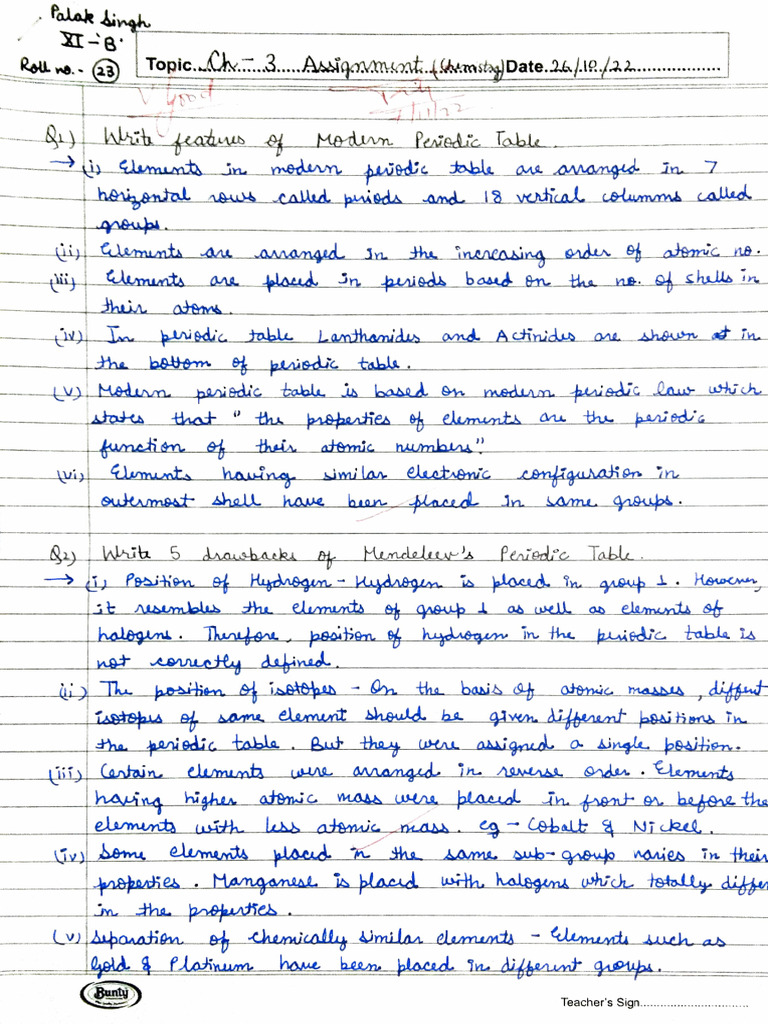 Palak Singh
XI-B.
Roll no.- (23)
Topic...Ch-3 Assignment (Chemistry) Date.26/10/22
V. Good
/11/22
Q1) Write features of Modern Periodic Table.
→ (i) Elements in modern periodic table are arranged in 7
horizontal rows called periods and 18 vertical columns called
groups.
(ii) Elements are arranged in the increasing order of atomic no.
(iii) Elements are placed in periods based on the no. of shells in
their atoms.
(iv) In periodic table Lanthanides and Actinides are shown in
the bottom of periodic table.
(v) Modern periodic table is based on modern periodic law which
states that " the properties of elements are the periodic
function of their atomic numbers".
(vi) Elements having similar electronic configuration in
outermost shell have been placed in same groups.
Q2) Write 5 drawbacks of Mendeleev's Periodic Table.
→ (i) Position of Hydrogen - Hydrogen is placed in group 1. However,
it resembles the elements of group 1 as well as elements of
halogens. Therefore, position of hydrogen in the periodic table is
not correctly defined.
(ii) The position of isotopes - On the basis of atomic masses, diffent
isotopes of same element should be given different positions in
the periodic table. But they were assigned a single position.
(iii) Certain elements were arranged in reverse order. Elements
having higher atomic mass were placed in front or before the
elements with less atomic mass. eg - Cobalt & Nickel.
(iv) Some elements placed in the same sub-group varies in their
properties. Manganese is placed with halogens which totally differ
in the properties.
(v) Separation of chemically similar elements - Elements such as
Gold & Platinum have been placed in different groups.
Bunty
Teacher's Sign..............................